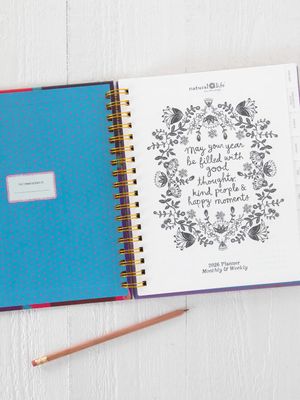 natural life
May your year
be filled with
good
thoughts,
kind people &
happy moments
2026 Planner
Monthly & Weekly